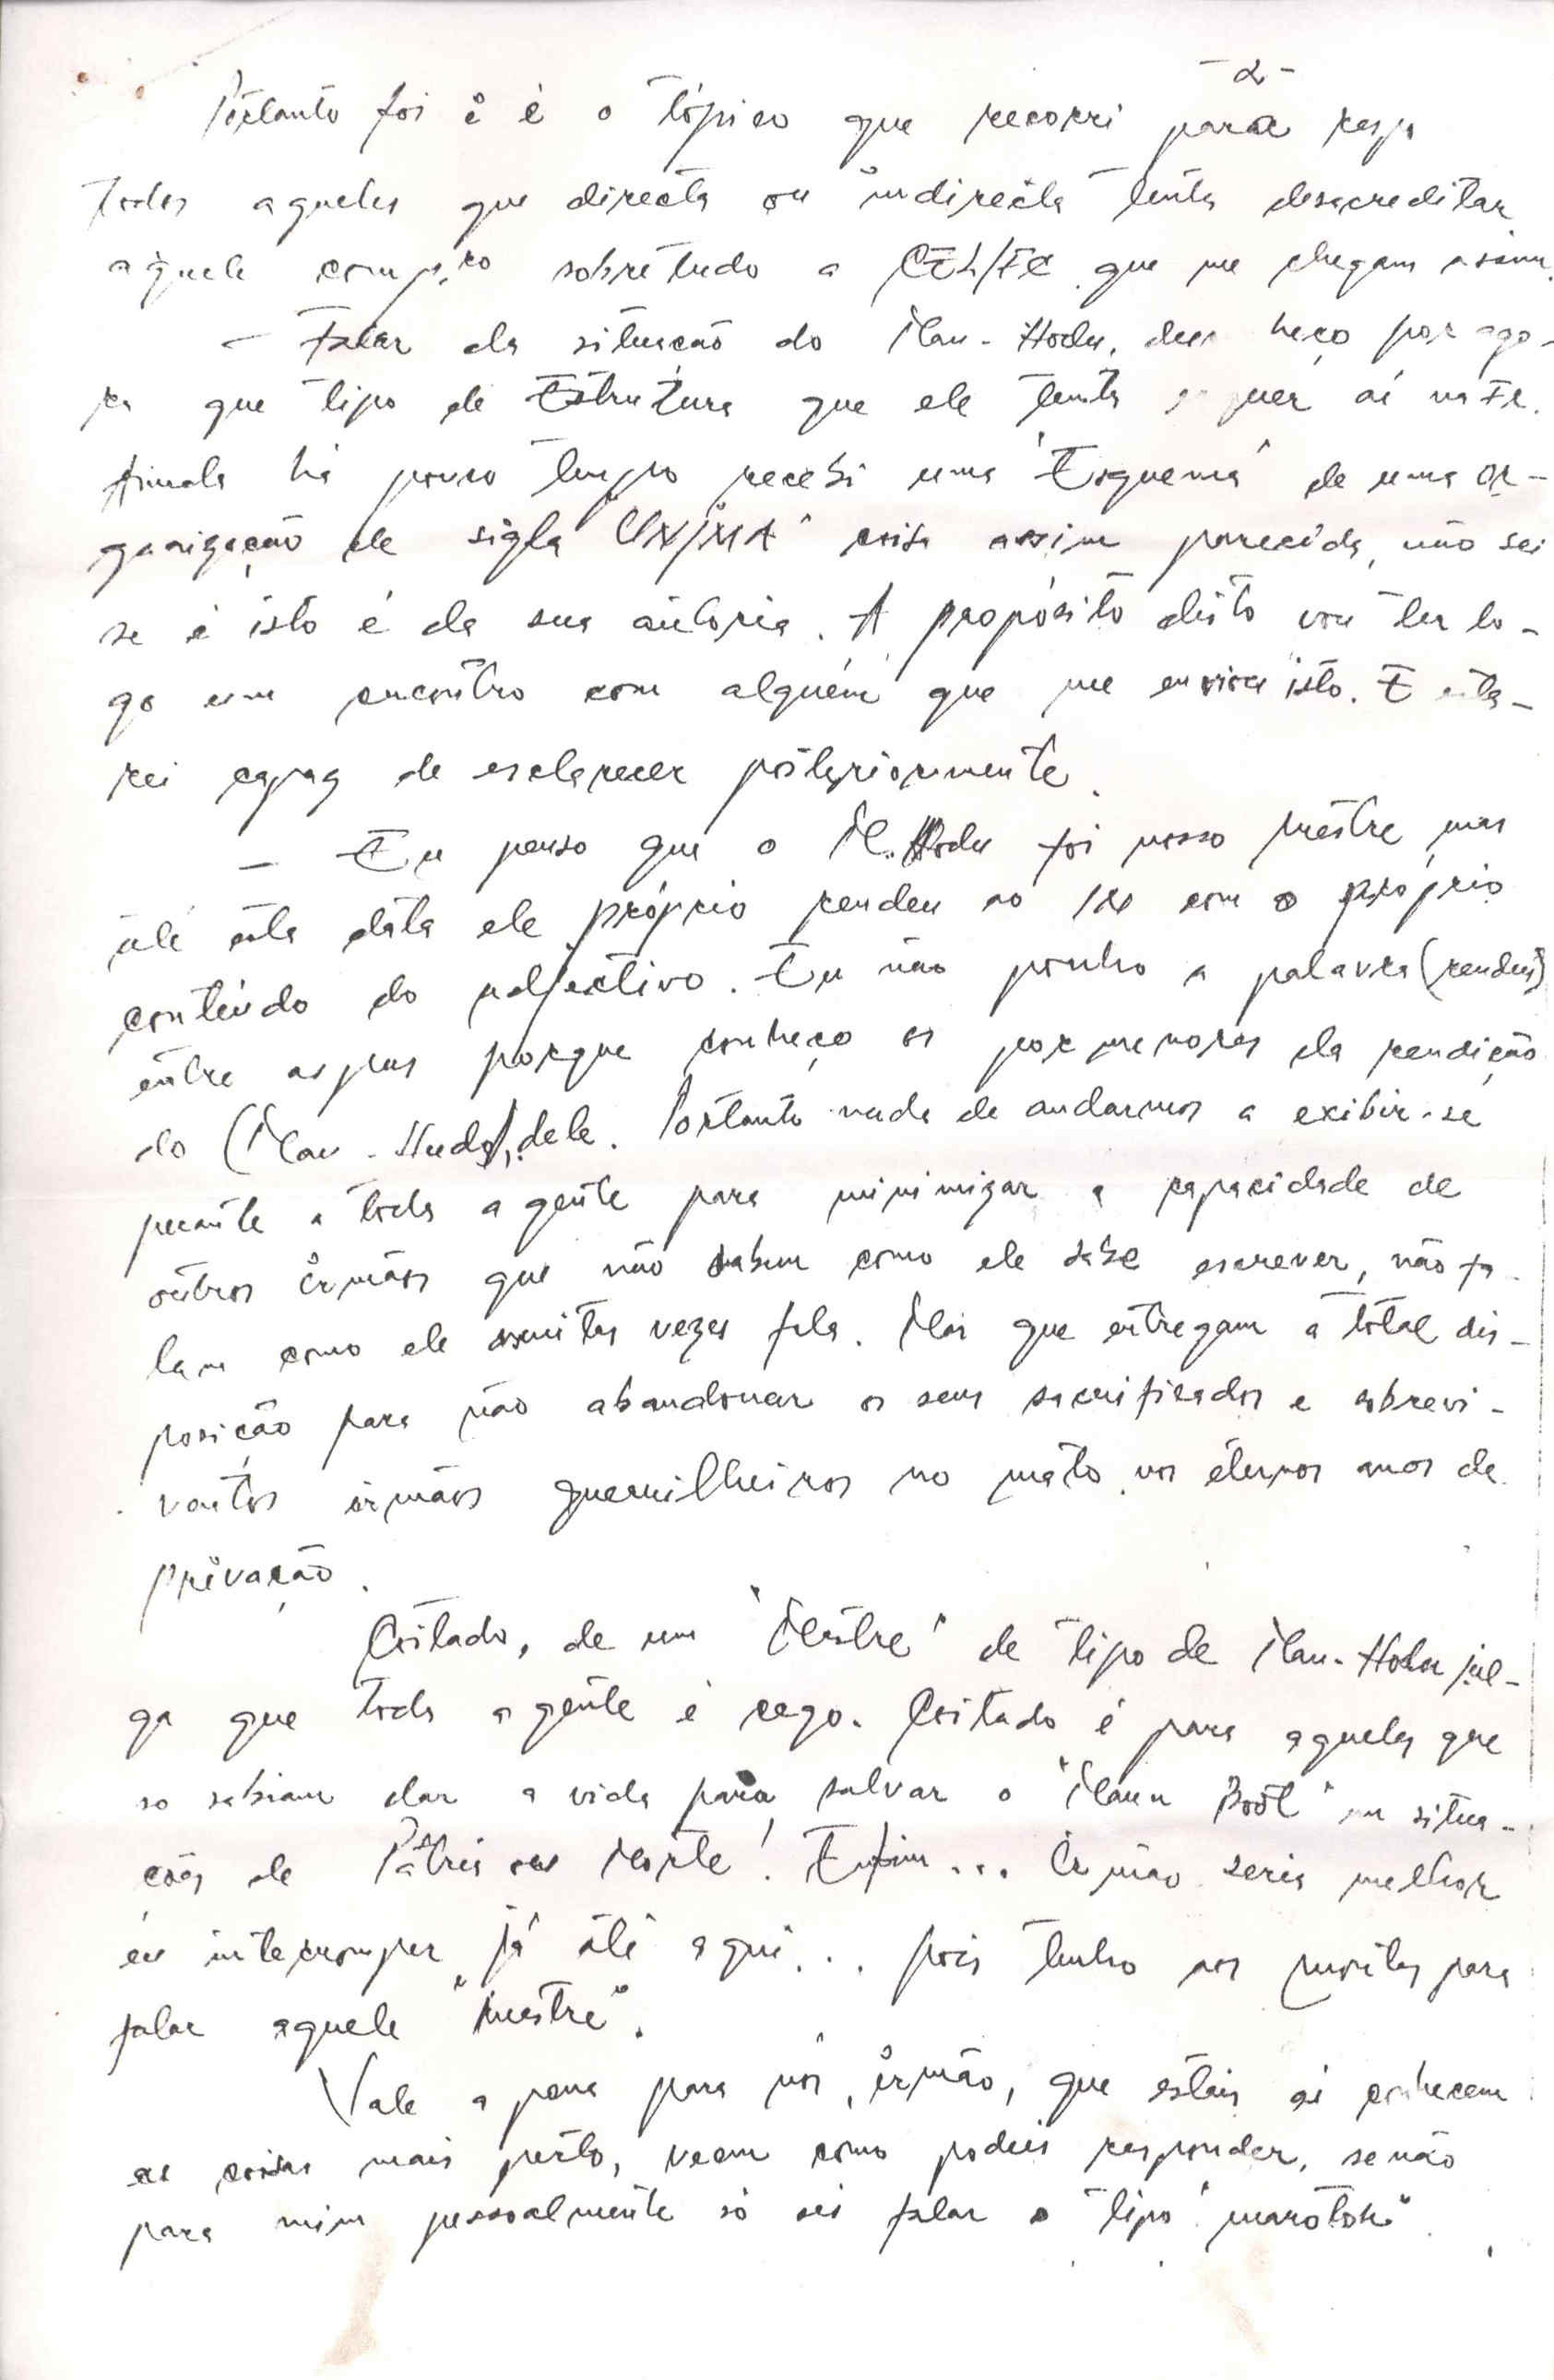 -2-
Portanto foi e é o tópico que recorri para resp
todos aqueles que directa ou indirecta tenta desacreditar
aquele comp.ro sobretudo a CEL/FC que me chegam assim.
- Falar da situação do Mau-Hodu, por ago-
ra que tipo de Estrutura que ele tenta aí na FC.
Ainda há pouco tempo recebi uma "Esquema" de uma or-
ganização de sigla coisa assim parecida, não sei
se é isto é da sua autoria. A propósito disto vou ter lo-
go um encontro com alguém que me enviou isto. E esta-
rei capaz de esclarecer posteriormente.
- Eu penso que o M.Hodu foi nosso mestre, mas
até esta data ele próprio rendeu ao IN com o próprio
conteúdo do adjectivo. Eu não ponho a palavra (rendeu)
entre aspas porque conheço os pormenores da rendição
do (Mau-Hudo), dele. Portanto nada de andarmos a exibir-se
perante a toda a gente para minimizar a capacidade de
outros irmãos que não sabem como ele sabe escrever, não fa-
lam como ele muitas vezes fala. Mas que entregam a total dis-
posição para não abandonar os seus sacrificados e sobrevi-
ventes irmãos guerrilheiros no mato nos éternos anos de
privação.
Coitado, de um "Mestre" de tipo de Mau-Hodu jul-
ga que toda a gente é cego. Coitado é para aqueles que
so sabiam dar a vida para salvar o "Maun Boot" em situa-
ções de Pátria ou Morte! Enfim... Irmão seria melhor
eu interromper já até aqui... pois tenho aos muitas para
falar aquele "mestre".
Vale a pena para vós, irmão, que estais aí conhecem
as coisas mais perto, veem como podeis responder, senão
para mim pessoalmente só sei falar o tipo "marotok".